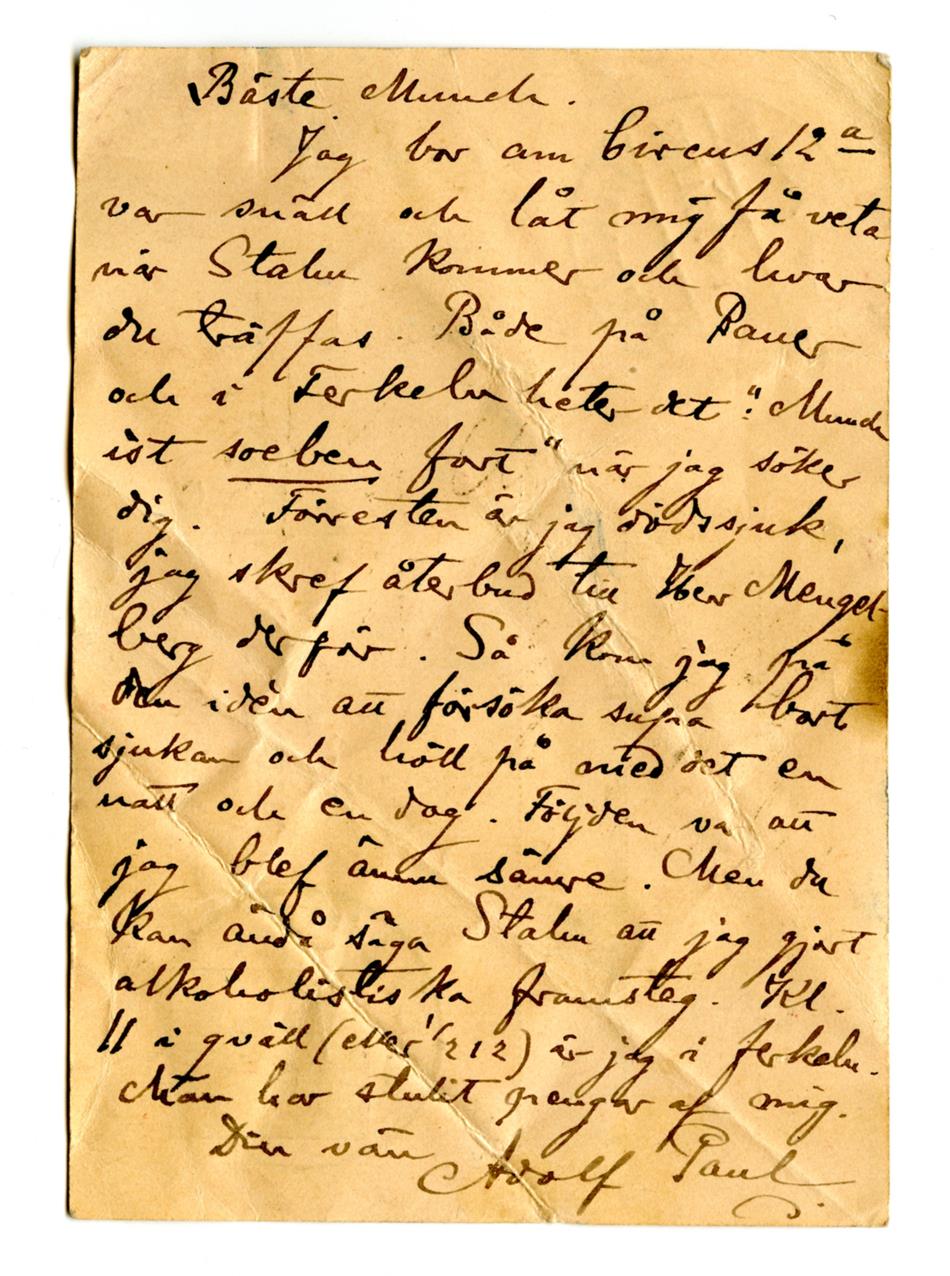 Bäste Munch.
Jag bor am Circus 12 a
var snäll och låt mig få veta
när Stahn kommer och hvar
du träffas. Både på Bauer
och i Ferkeln heter det: "Munch
ist soeben fort" när jag söker
dig. Förresten är jag dödssjuk,
jag skref återbud till Herr Mengel-
berg derför. Så kom jag på
den idén att försöka supa bort
sjukan och höll på med det en
natt och en dag. Följden va att
jag blef ännu sämre. Men du
kan ändå säga Stahn att jag gjort
alkoholistiska framsteg. Kl.
11 i qväll (eller 1/2 12) är jag i Ferkeln.
Man har stulit pengar af mig.
Din vän Adolf Paul